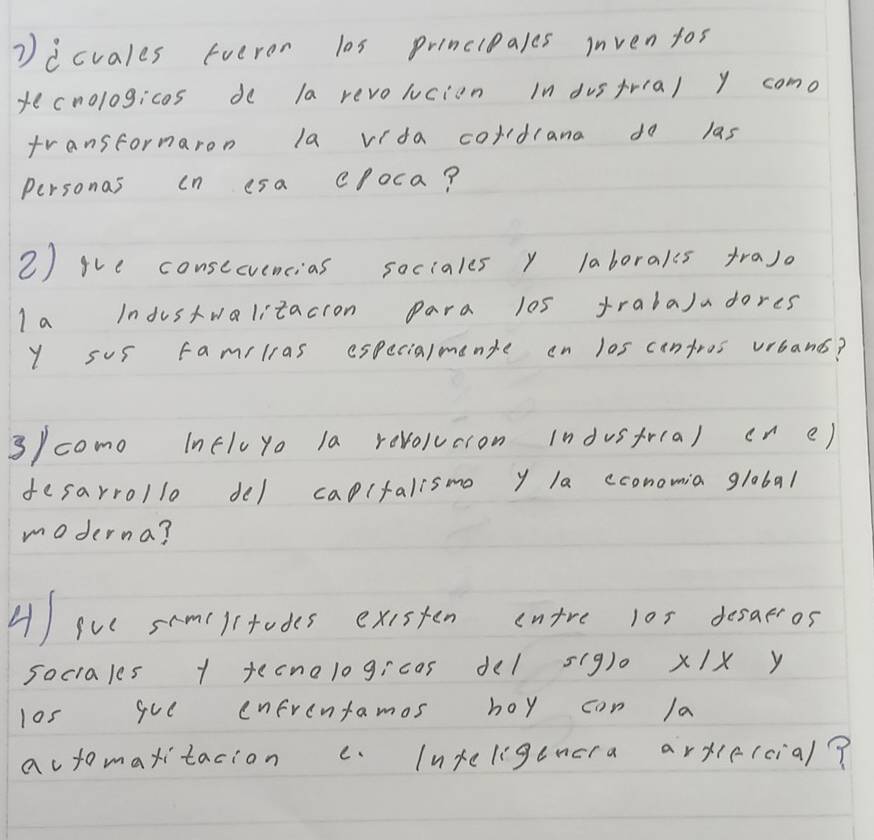 1) ¿cuales fueron los principales inventos
tecnologicos de la revolucion industrial y como
transformaron la vida cotidiana de las
personas en esa epoca?
2) que consecuencias sociales y laborales trajo
la industrialitacion para los trabajadores
y sus familias especialmente en los centros urbanos?
3) como influyo la revolucion industrial en el
desarrollo del capitalismo y la economia global
moderna?
4) que similitudes existen entre los desafios
sociales y tecnologicos del siglo XIX y
los que enfrentamos hoy con la
automatitacion e. inteligencia artificial?